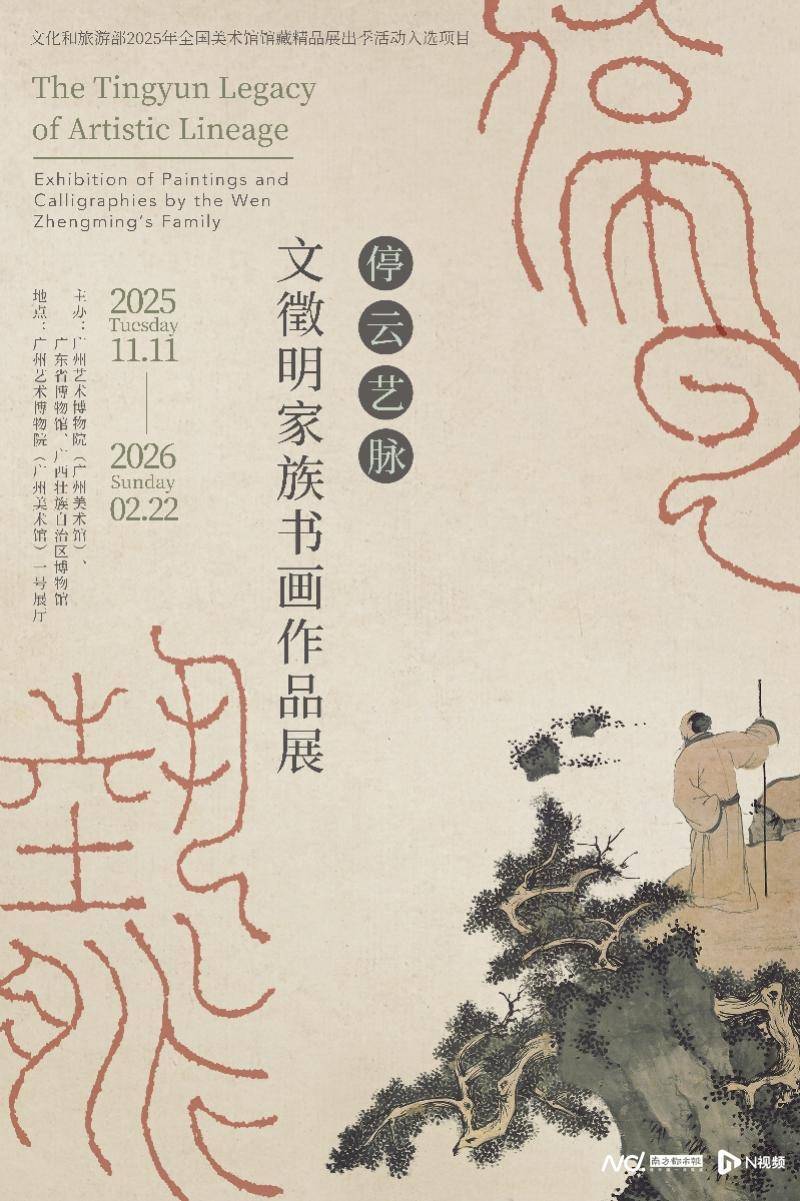 文化和旅游部2025年全国美术馆馆藏精品展出季活动入选项目
The Tingyun Legacy
of Artistic Lineage
Exhibition of Paintings and
Calligraphies by the Wen
Zhengming's Family
停云艺脉
文徵明家族书画作品展
2025
Tuesday
11.11
2026
Sunday
02.22
主办：广州艺术博物院（广州美术馆）、
广东省博物馆、广西壮族自治区博物馆
地点：广州艺术博物院（广州美术馆）一号展厅
南方都市报
N视频